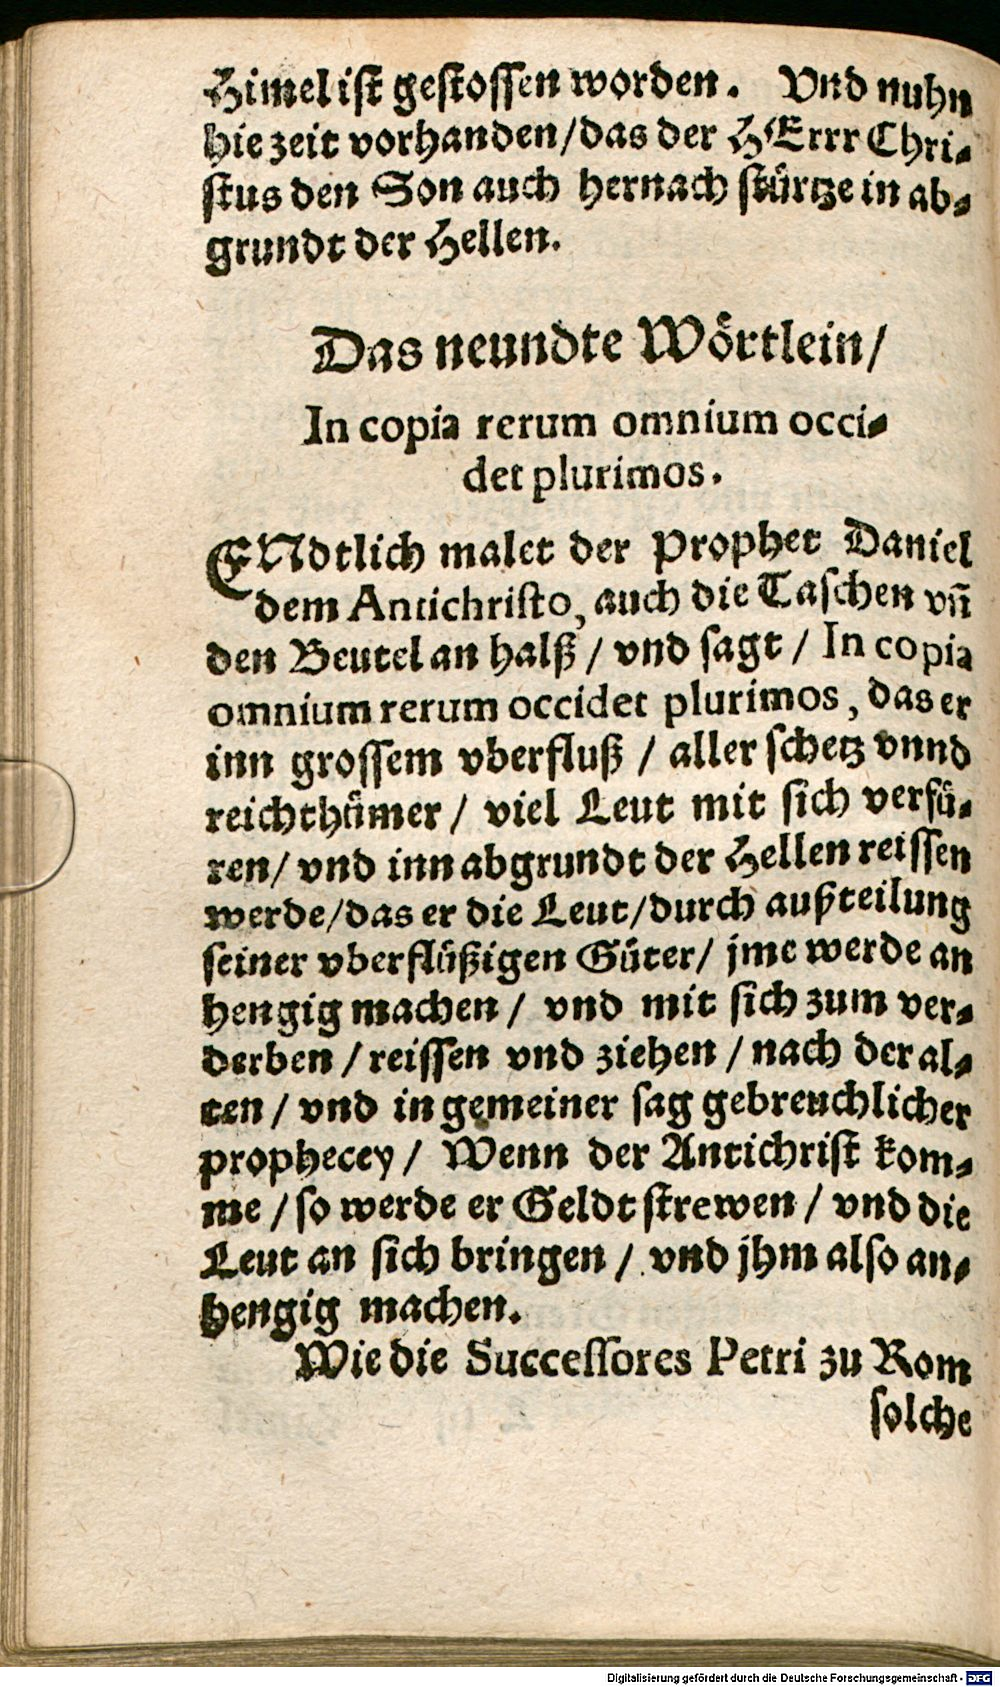 Himel ist gestossen worden. Vnd nuhn
hie zeit vorhanden/das der HErrr Chri-
stus den Son auch hernach stürtze in ab-
grundt der Hellen.
Das neundte Wörtlein/
In copia rerum omnium occi-
det plurimos.
ENdtlich malet der Prophet Daniel
dem Antichristo, auch die Taschen vñ
den Beutel an halß / vnd sagt / In copia
omnium rerum occidet plurimos, das er
inn grossem vberfluß / aller schetz vnnd
reichthümer / viel Leut mit sich verfü-
ren/ vnd inn abgrundt der Hellen reissen
werde/das er die Leut/durch außteilung
seiner vberflüßigen Güter/ jme werde an
hengig machen / vnd mit sich zum ver-
derben / reissen vnd ziehen / nach der al-
ten / vnd in gemeiner sag gebreuchlicher
prophecey / Wenn der Antichrist kom-
me / so werde er Geldt strewen / vnd die
Leut an sich bringen / vnd jhm also an-
hengig machen.
Wie die Successores Petri zu Rom
solche
Digitalisierung gefördert durch die Deutsche Forschungsgemeinschaft - DFG